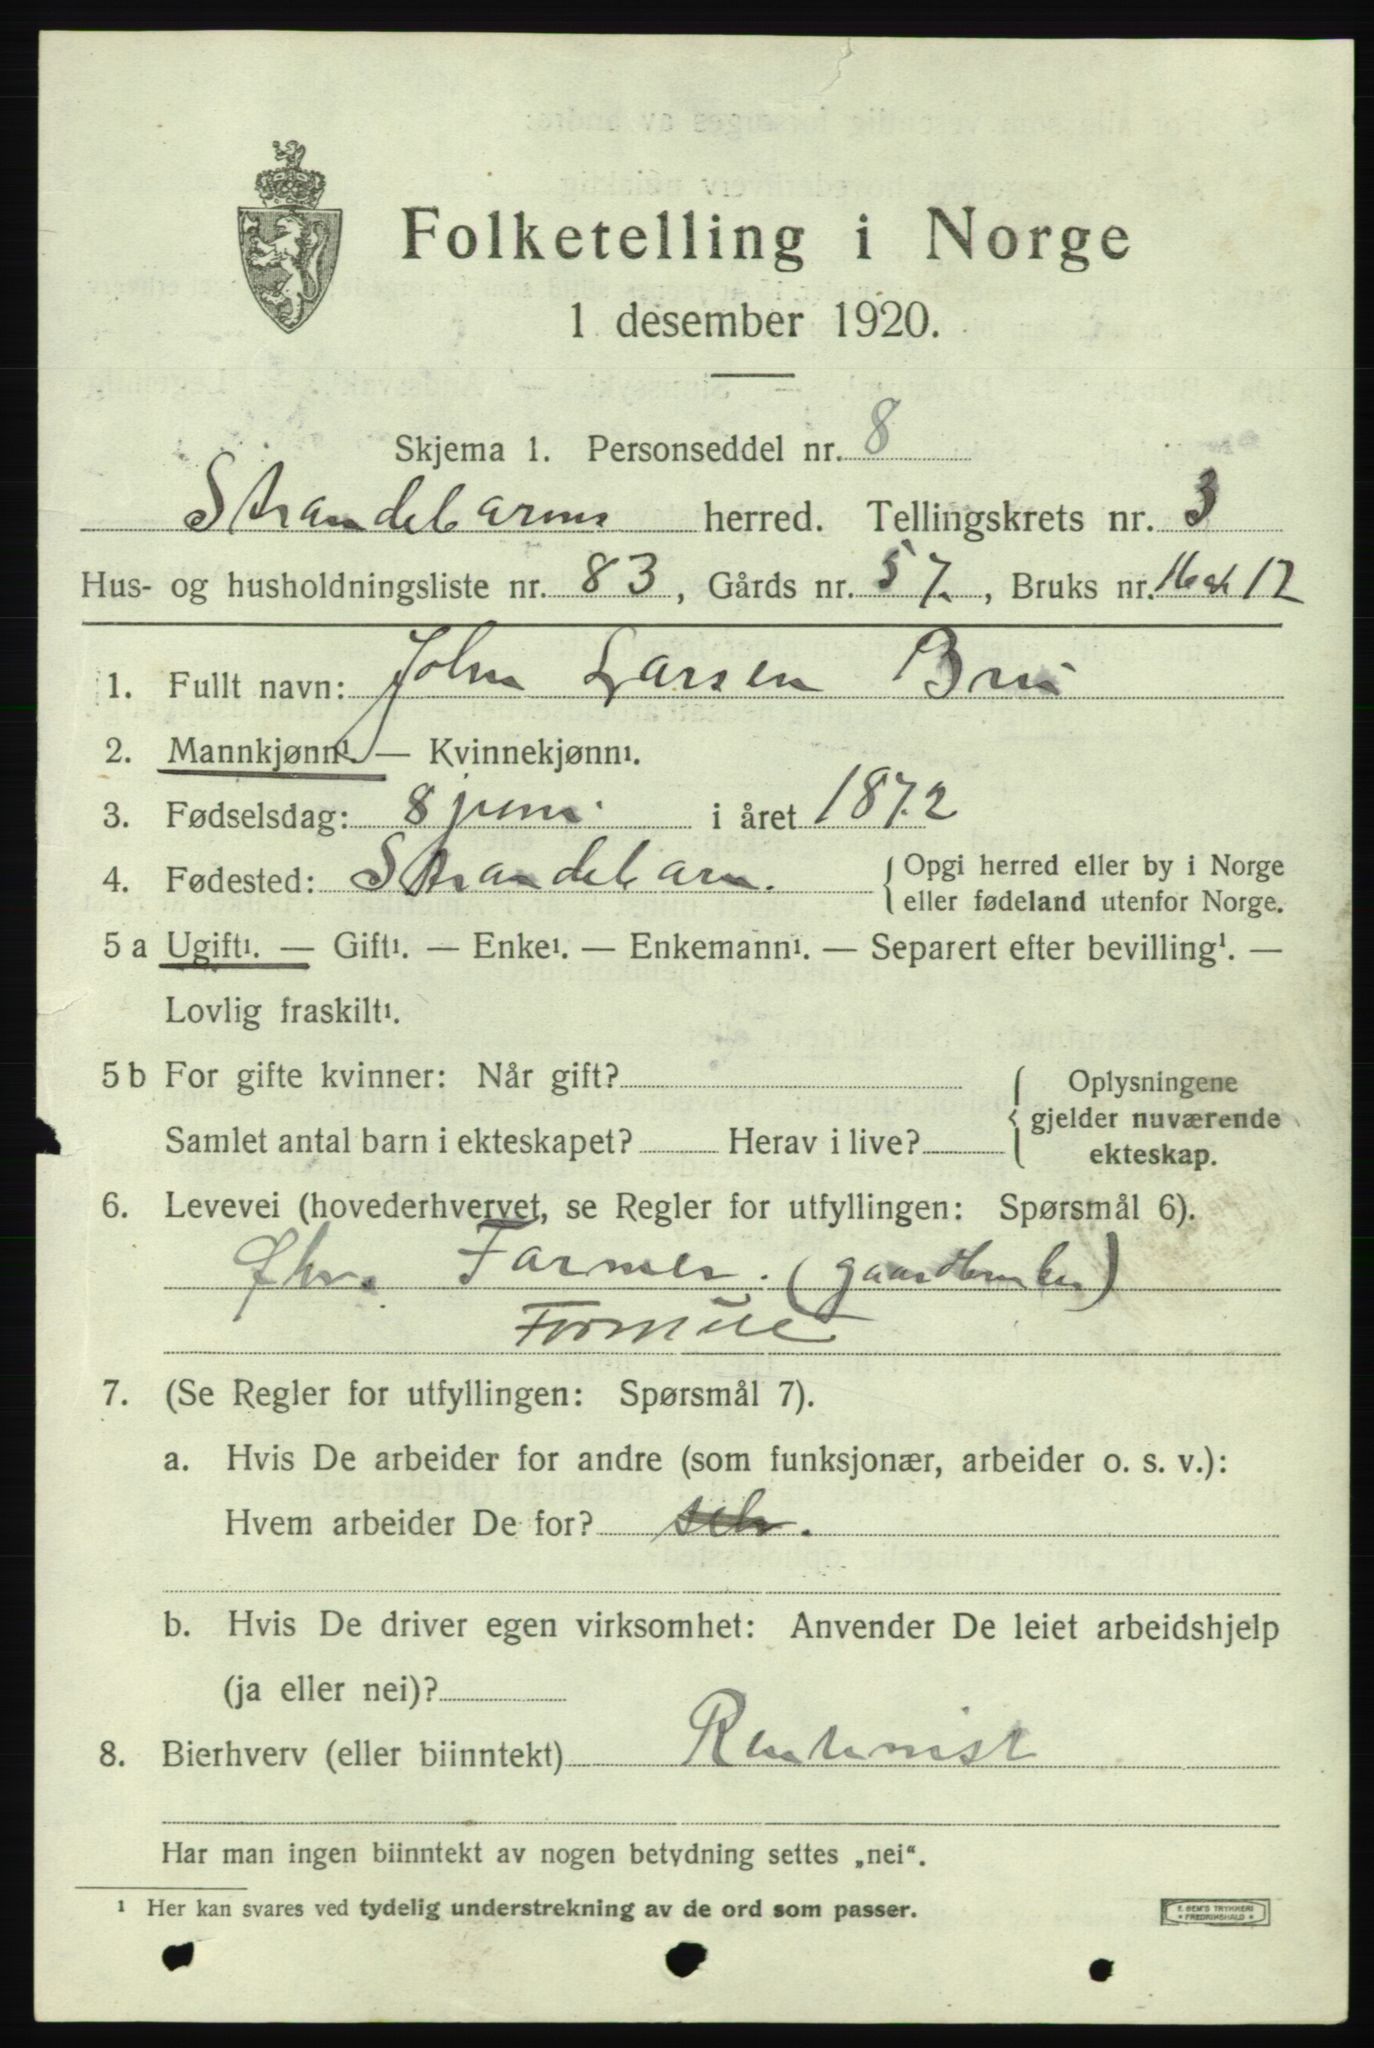 Folketelling i Norge
1 desember 1920.
Skjema 1. Personseddel nr. 8
Strandebarms herred. Tellingskrets nr. 3
Hus- og husholdningsliste nr. 83, Gårds nr. 57., Bruks nr. 16 og 12
1. Fullt navn: John Larsen Bru
2. Mannkjønn¹. — Kvinnekjønn¹.
3. Fødselsdag: 8 juni i året 1872
4. Fødested: Strandebarm. Opgi herred eller by i Norge
eller fødeland utenfor Norge.
5 a Ugift¹. — Gift¹. — Enke¹. — Enkemann¹. — Separert efter bevilling¹. —
Lovlig fraskilt¹.
5 b For gifte kvinner: Når gift? Oplysningene
gjelder nuværende
Samlet antal barn i ekteskapet? Herav i live?
ekteskap.
6. Levevei (hovederhvervet, se Regler for utfyllingen: Spørsmål 6).
fhv. Farmer. (gaardbruker)
Formue
7. (Se Regler for utfyllingen: Spørsmål 7).
a. Hvis De arbeider for andre (som funksjonær, arbeider o. s. v.):
Hvem arbeider De for?
b. Hvis De driver egen virksomhet: Anvender De leiet arbeidshjelp
(ja eller nei)?
8. Bierhverv (eller biinntekt) Rentenist
Har man ingen biinntekt av nogen betydning settes „nei“.
¹ Her kan svares ved tydelig understrekning av de ord som passer.
E. SEM'S TRYKKERI
• FREDRIKSHALD •